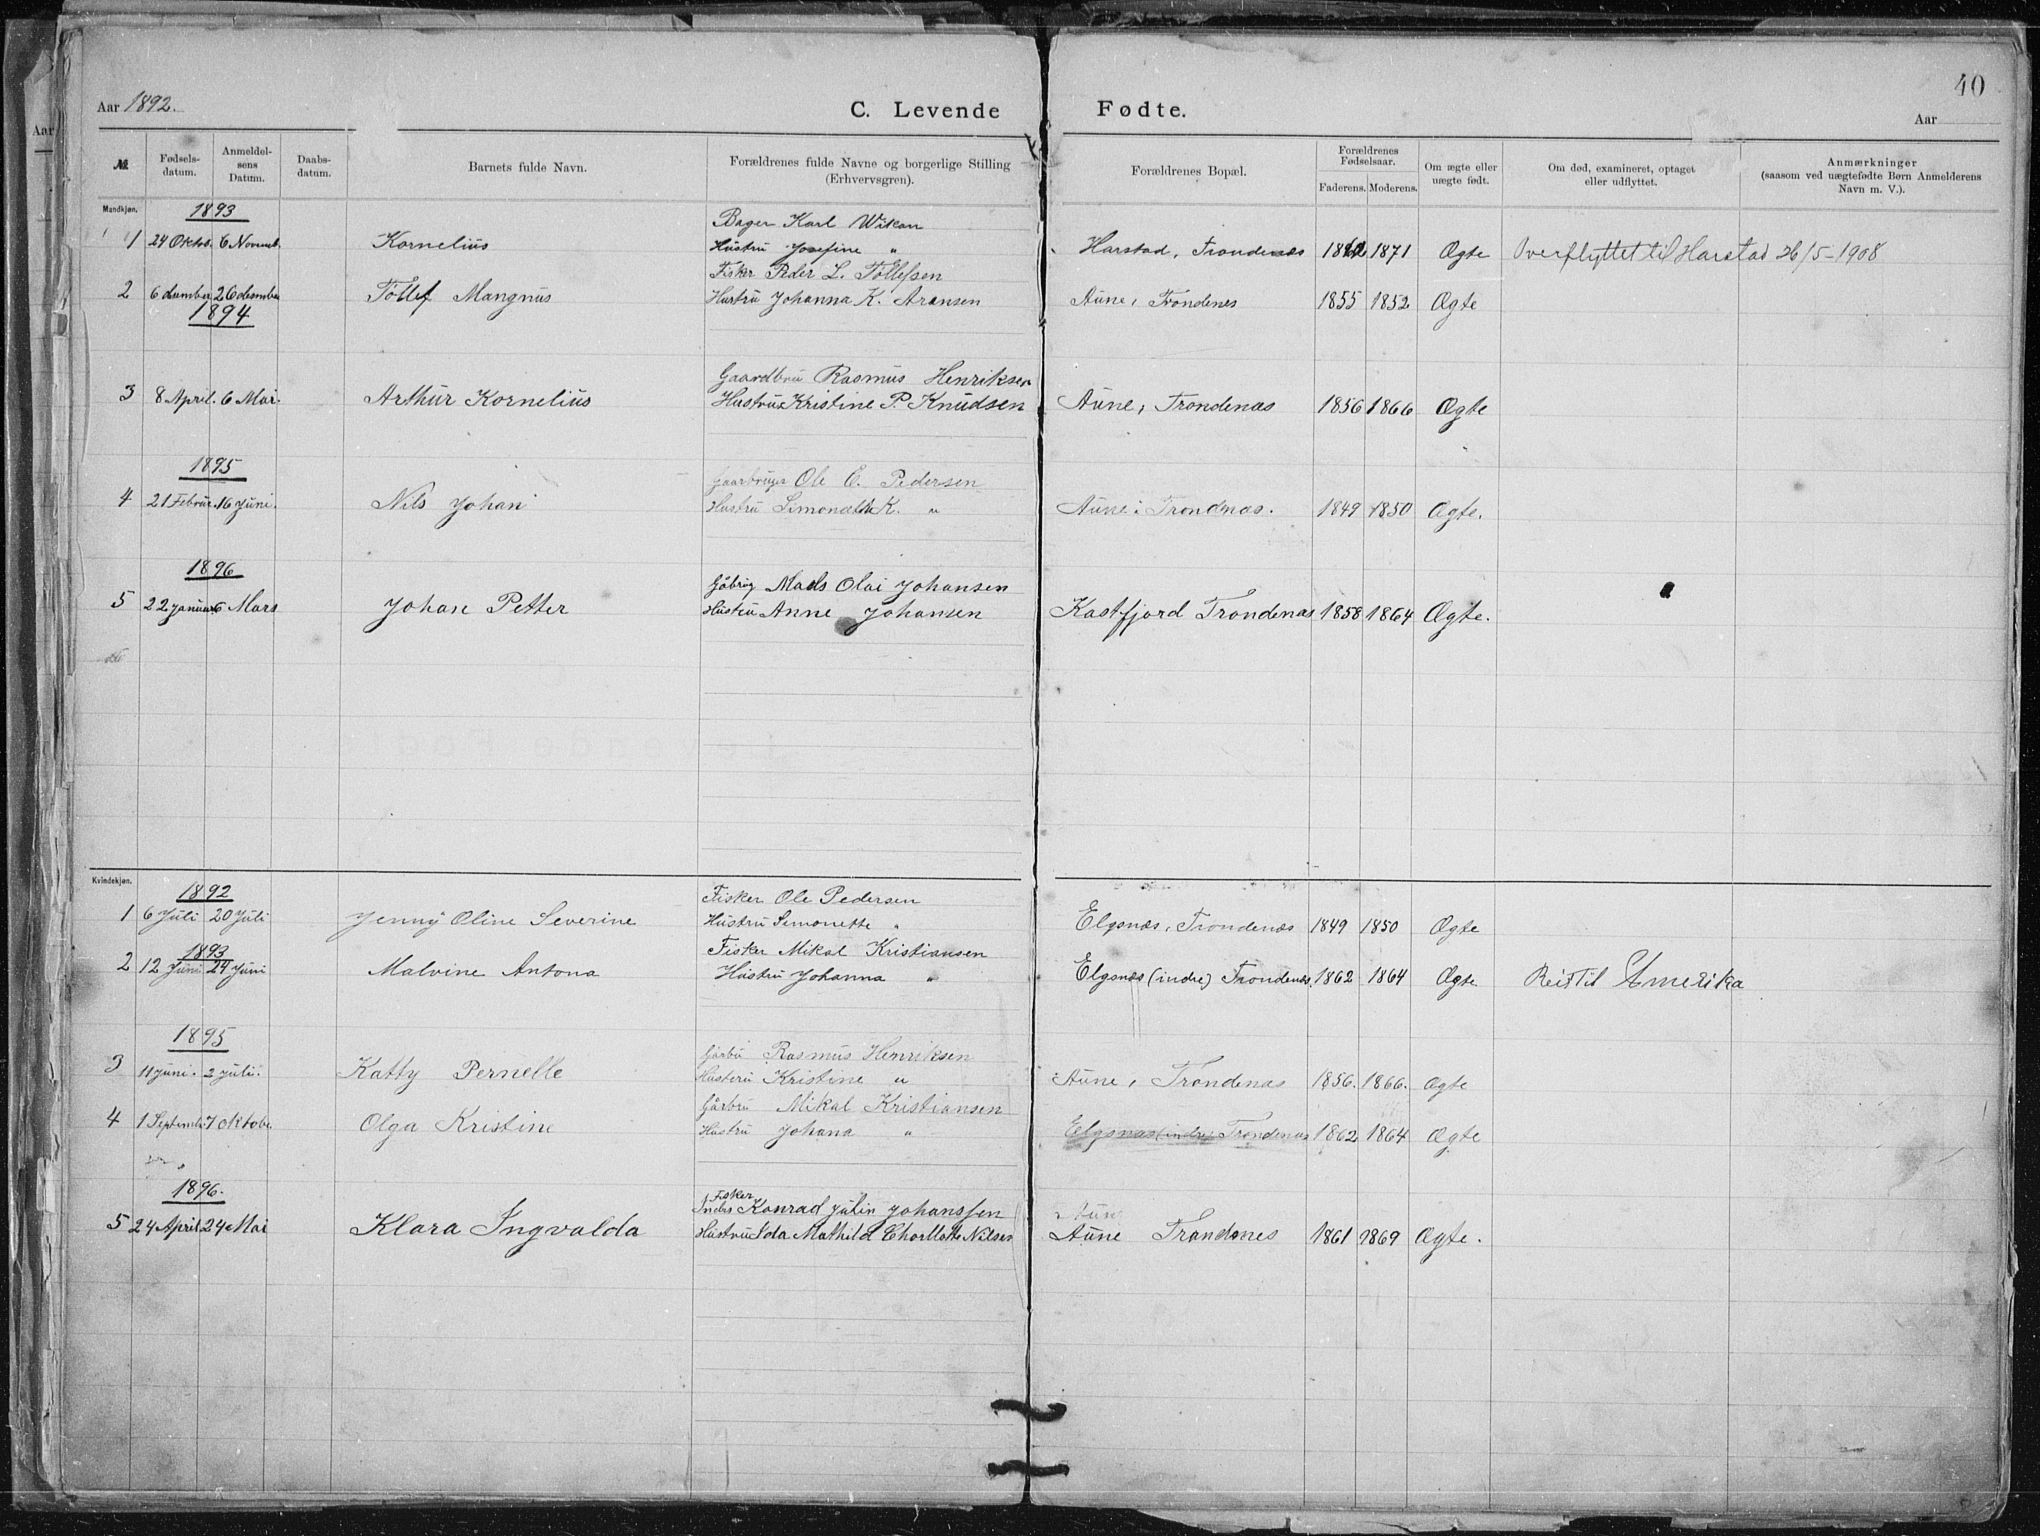 40
Aar 1892.
C. Levende Fødte.
Aar
Aar
№
Fødsels-datum.
Anmeldel-sens Datum.
Daabs-datum.
Barnets fulde Navn.
Forældrenes fulde Navne og borgerlige Stilling (Erhvervsgren).
Forældrenes Bopæl.
Forældrenes Fødselsaar.
Faderens. Moderens.
Om ægte eller uægte født.
Om død, examineret, optaget eller udflyttet.
Anmærkninger (saasom ved uægtefødte Børn Anmelderens Navn m. V.).
Mandkjøn.
1893
Bager Karl Wikan
1 24 Oktob. 6 Novemb. Kornelius Hustru Josefine " Harstad, Trondenæs 1871 Ægte Overflyttet til Harstad 26/5-1908
Fisker Peder L. Tollefsen
2 6 desmber 26 desmber Tollef Mangnus Hustru Johanna K. Aransen Aune, Trondenes 1855 1852 Ægte
1894
Gaardbru Rasmus Henriksen
3 8 April. 6 Mai. Arthur Kornelius Hustru Kristine P. Knudsen Aune, Trondenæs 1856 1866 Ægte
1895
Gaarbruger Ole E. Pedersen
4 21 Februr. 16 Juni. Nils Johan Hustru K. " Aune i Trondnæs. 1849 1850 Ægte.
1896
Gåbrug Mads Olai Johansen
5 22 Januar 6 Mars Johan Petter Hustru Anne Johansen Kastfjord Trondenæs 1858 1864 Ægte.
Kvindekjøn.
1892
Fisker Ole Pedersen
1 6 Juli 20 Juli Jenny Oline Severine Hustru Simonette " Elgsnæs, Trondenæs 1849 1850 Ægte
1893
Fisker Mikal Kristiansen
2 12 Juni 24 Juni Malvine Antona Hustru Johanna " Elgsnæs (indre) Trondenæs. 1862 1864 Ægte Reist til Amerika
1895
Gårbru Rasmus Henriksen
3 11 Juni. 2 Juli. Katty Pernelle Husteru Kristine " Aune, Trondenæs 1856. 1866. Ægte
Gårbru Mikal Kristiansen
4 1 Septemb. 7 Oktobe. Olga Kristine Hustru Johana " Elgsnæs (indre) Trondenæs 1862 1864 Ægte
1896.
Fisker
Inders Konrad Julin Johanssen
Aun
5 24 April 24 Mai Klara Ingvalda Hustru Ida Mathild Chorllotte Nilsen Aune Trondenes 1861 1869 Ægte.